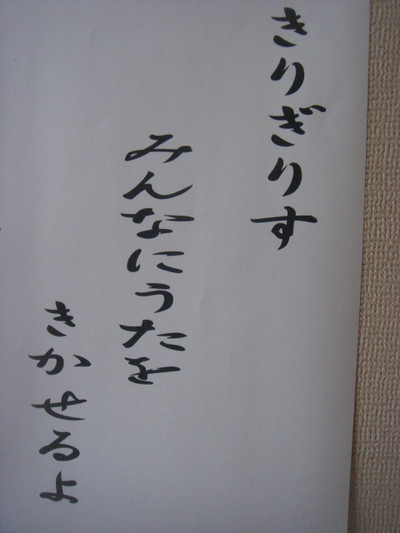 きりぎりす
みんなにうたを
きかせるよ